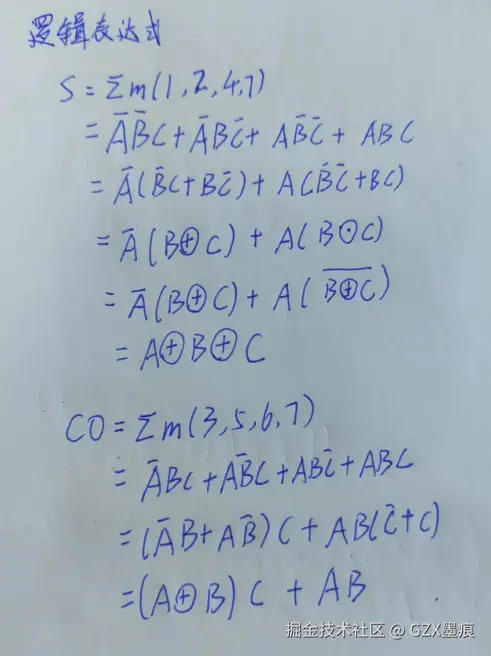 逻辑表达式
S = Σm(1,2,4,7)
= A̅B̅C + A̅BC̅ + AB̅C̅ + ABC
= A̅(B̅C+BC̅) + A(B̅C̅+BC)
= A̅(B⊕C) + A(B⊙C)
= A̅(B⊕C) + A(B̅⊕̅C̅)
= A⊕B⊕C
CO = Σm(3,5,6,7)
= A̅BC + AB̅C + ABC̅ + ABC
= (A̅B+AB̅)C + AB(C̅+C)
= (A⊕B)C + AB
掘金技术社区 @ GZX墨痕